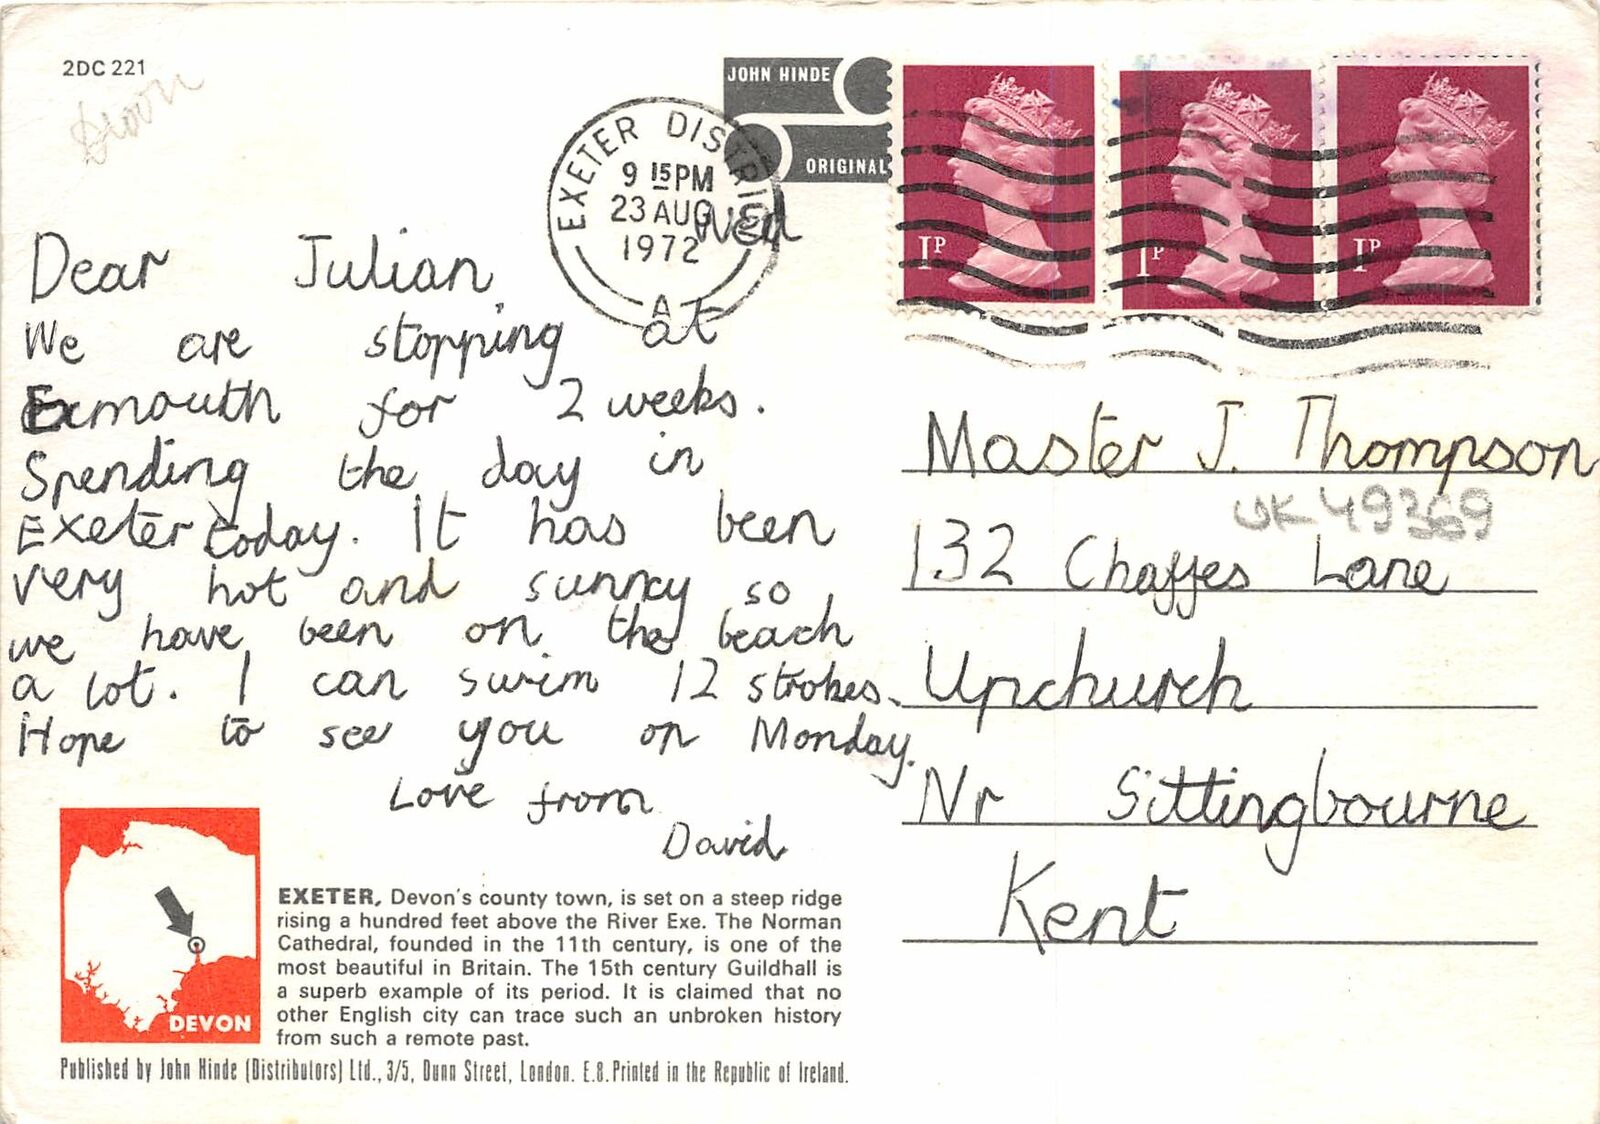 2DC 221
Devon
JOHN HINDE
ORIGINAL
EXETER DISTRICT
9 15 PM
23 AUG
1972
A
Wed
1P
1P
1P
Dear Julian,
We are stopping at
Exmouth for 2 weeks.
Spending the day in
Exeter today. It has been
very hot and sunny so
we have been on the beach
a lot. I can swim 12 strokes.
Hope to see you on Monday.
Love from
David
Master J. Thompson
UK 49369
132 Chaffes Lane
Upchurch
Nr Sittingbourne
Kent
DEVON
EXETER, Devon's county town, is set on a steep ridge
rising a hundred feet above the River Exe. The Norman
Cathedral, founded in the 11th century, is one of the
most beautiful in Britain. The 15th century Guildhall is
a superb example of its period. It is claimed that no
other English city can trace such an unbroken history
from such a remote past.
Published by John Hinde (Distributors) Ltd., 3/5, Dunn Street, London. E.8. Printed in the Republic of Ireland.